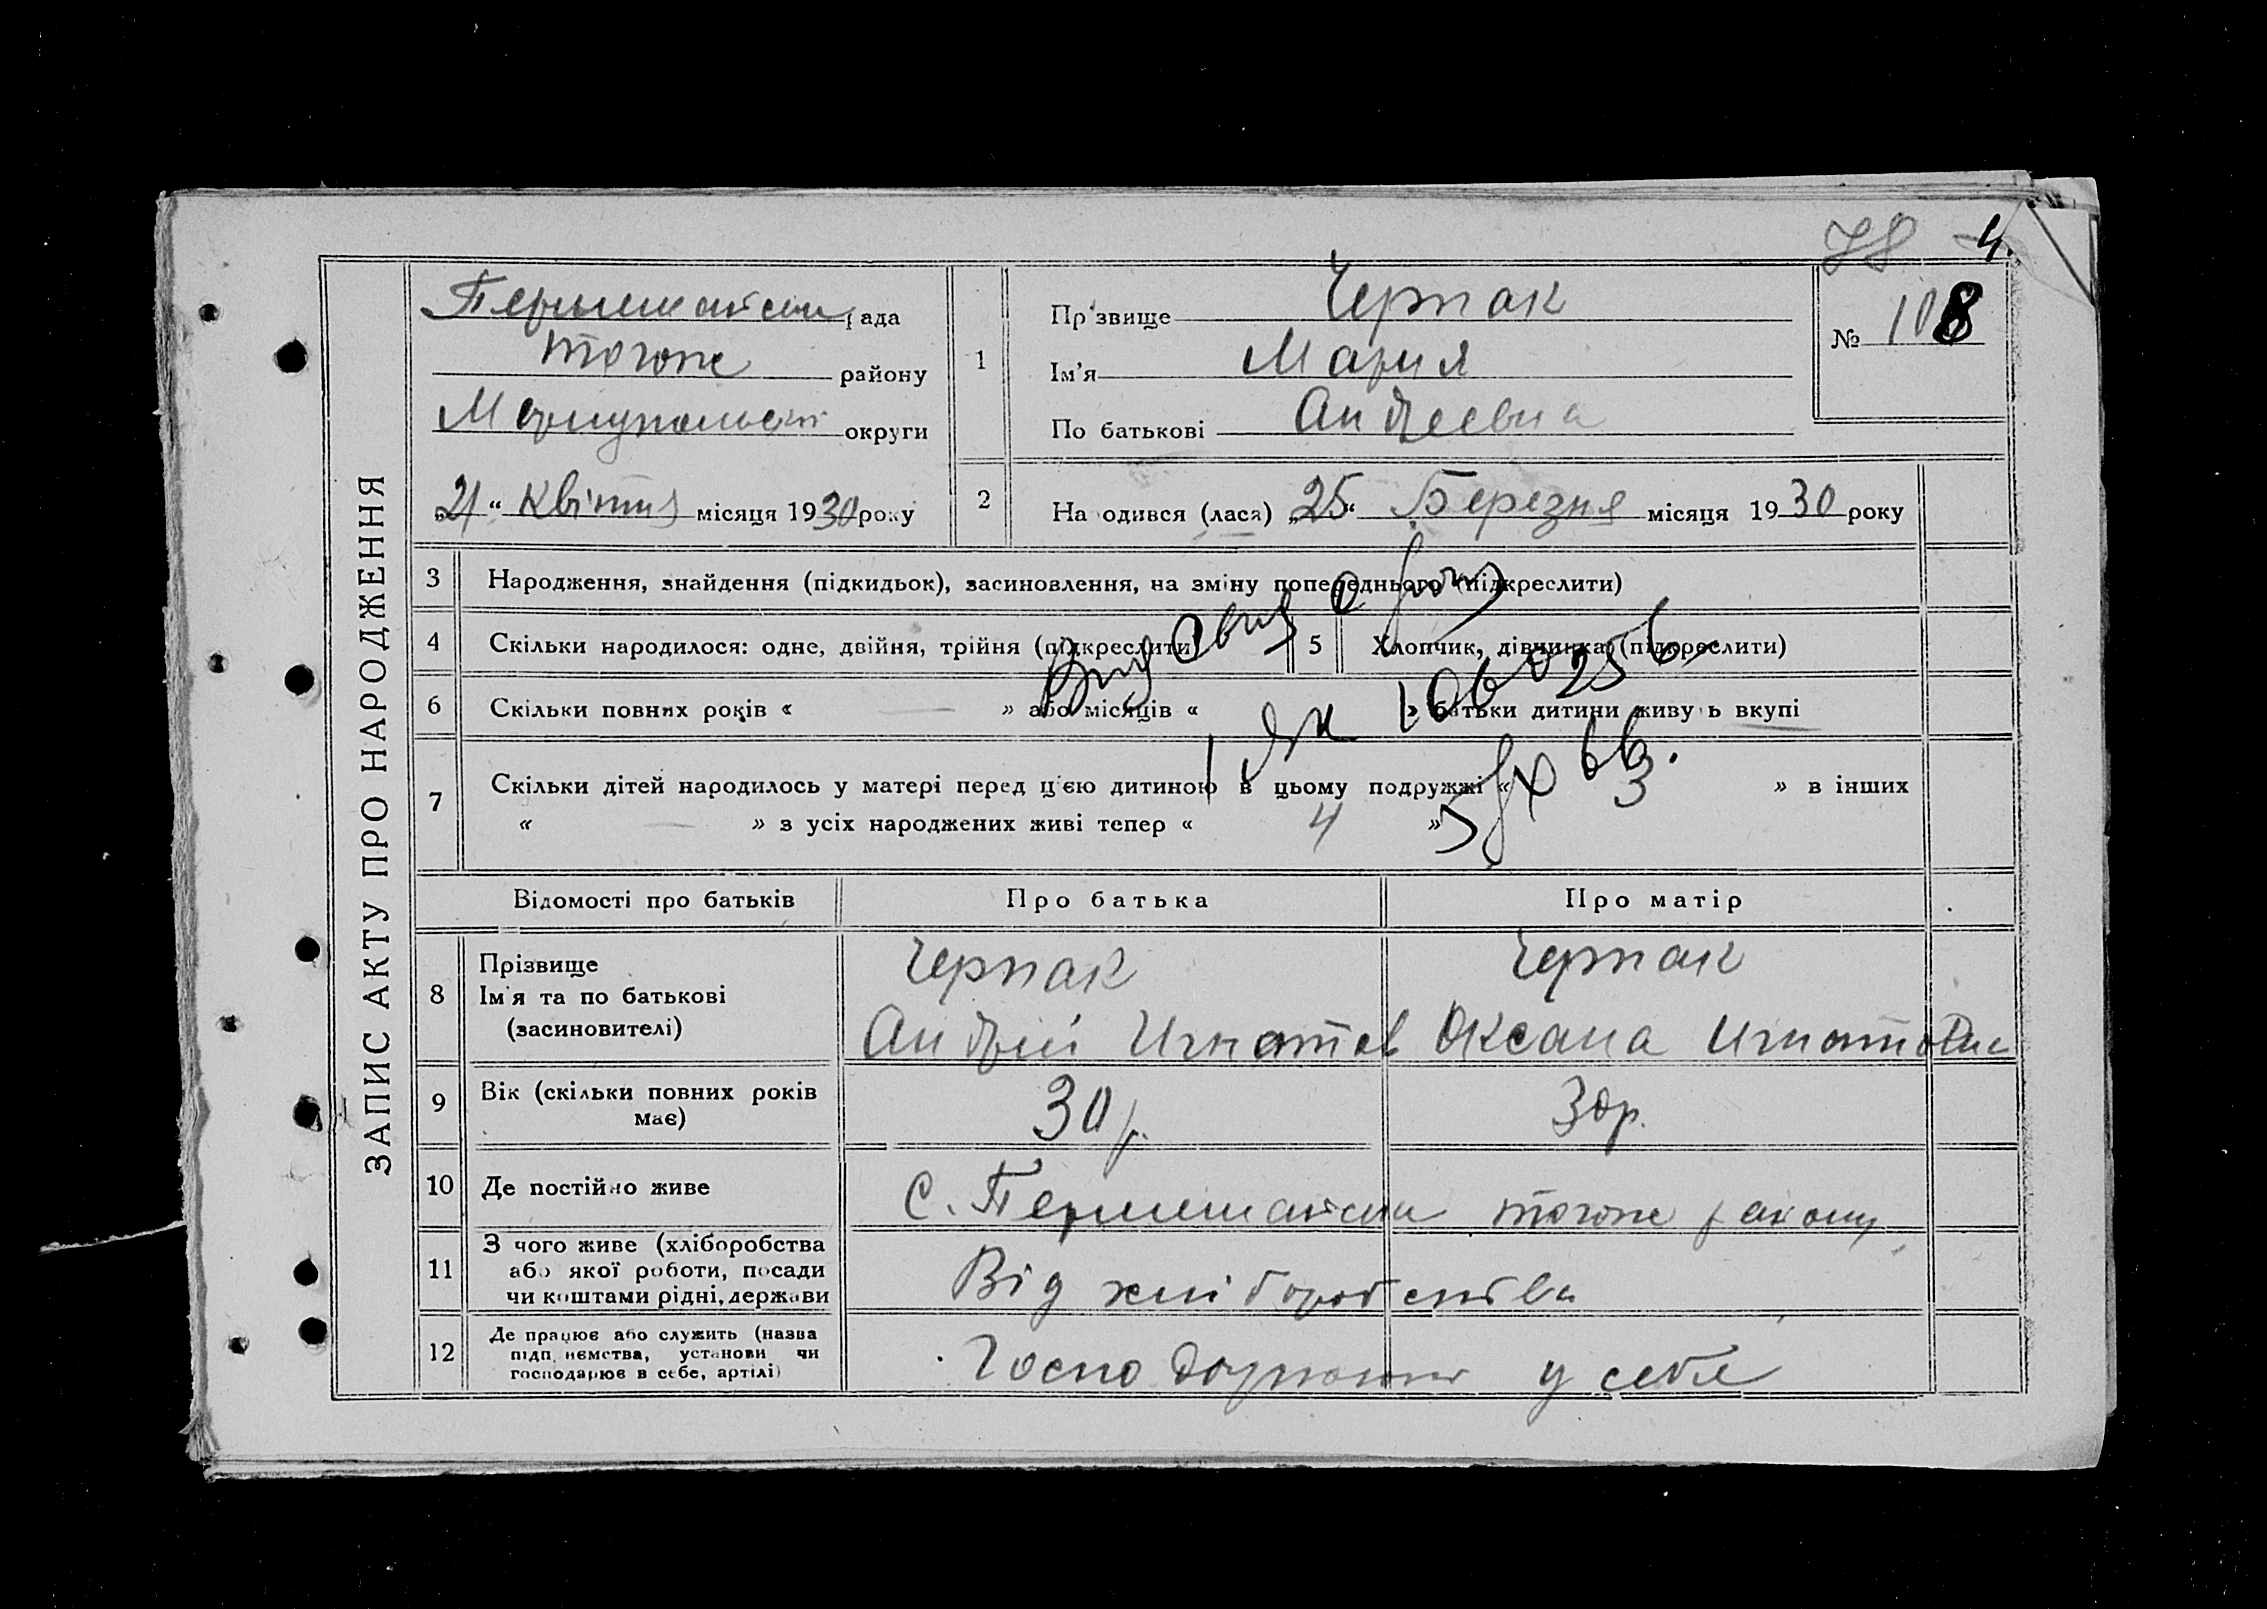 78 4
ЗАПИС АКТУ ПРО НАРОДЖЕННЯ
Першетайськ рада
тогоже району
Маріупольськ округи
„21“ Квітня місяця 1930 року
1
Прізвище Черпак
Ім'я Мария
По батькові Андреевна
№ 108
2 Народився (лася) „25“ Березня місяця 1930 року
3 Народження, знайдення (підкидьок), засиновлення, на зміну попереднього (підкреслити)
4 Скільки народилося: одне, двійня, трійня (підкреслити) 5 Хлопчик, дівчинка (підкреслити)
6 Скільки повних років « — » або місяців « » батьки дитини живуть вкупі
7 Скільки дітей народилось у матері перед цією дитиною в цьому подружжі « 3 » в інших
« — » з усіх народжених живі тепер « 4 »
1060256
5/IX 66
Відомості про батьків Про батька Про матір
8 Прізвище Черпак Черпак
Ім'я та по батькові
(засиновителі) Андрий Игнатов Оксана Игнатовна
9 Вік (скільки повних років має) 30 р. 30 р.
10 Де постійно живе с. тогоже району
11 З чого живе (хліборобства
або якої роботи, посади
чи коштами рідні, держави Від хліборобства
12 Де працює або служить (назва
підприємства, установи чи
господарює в себе, артілі) Господарюють у себе